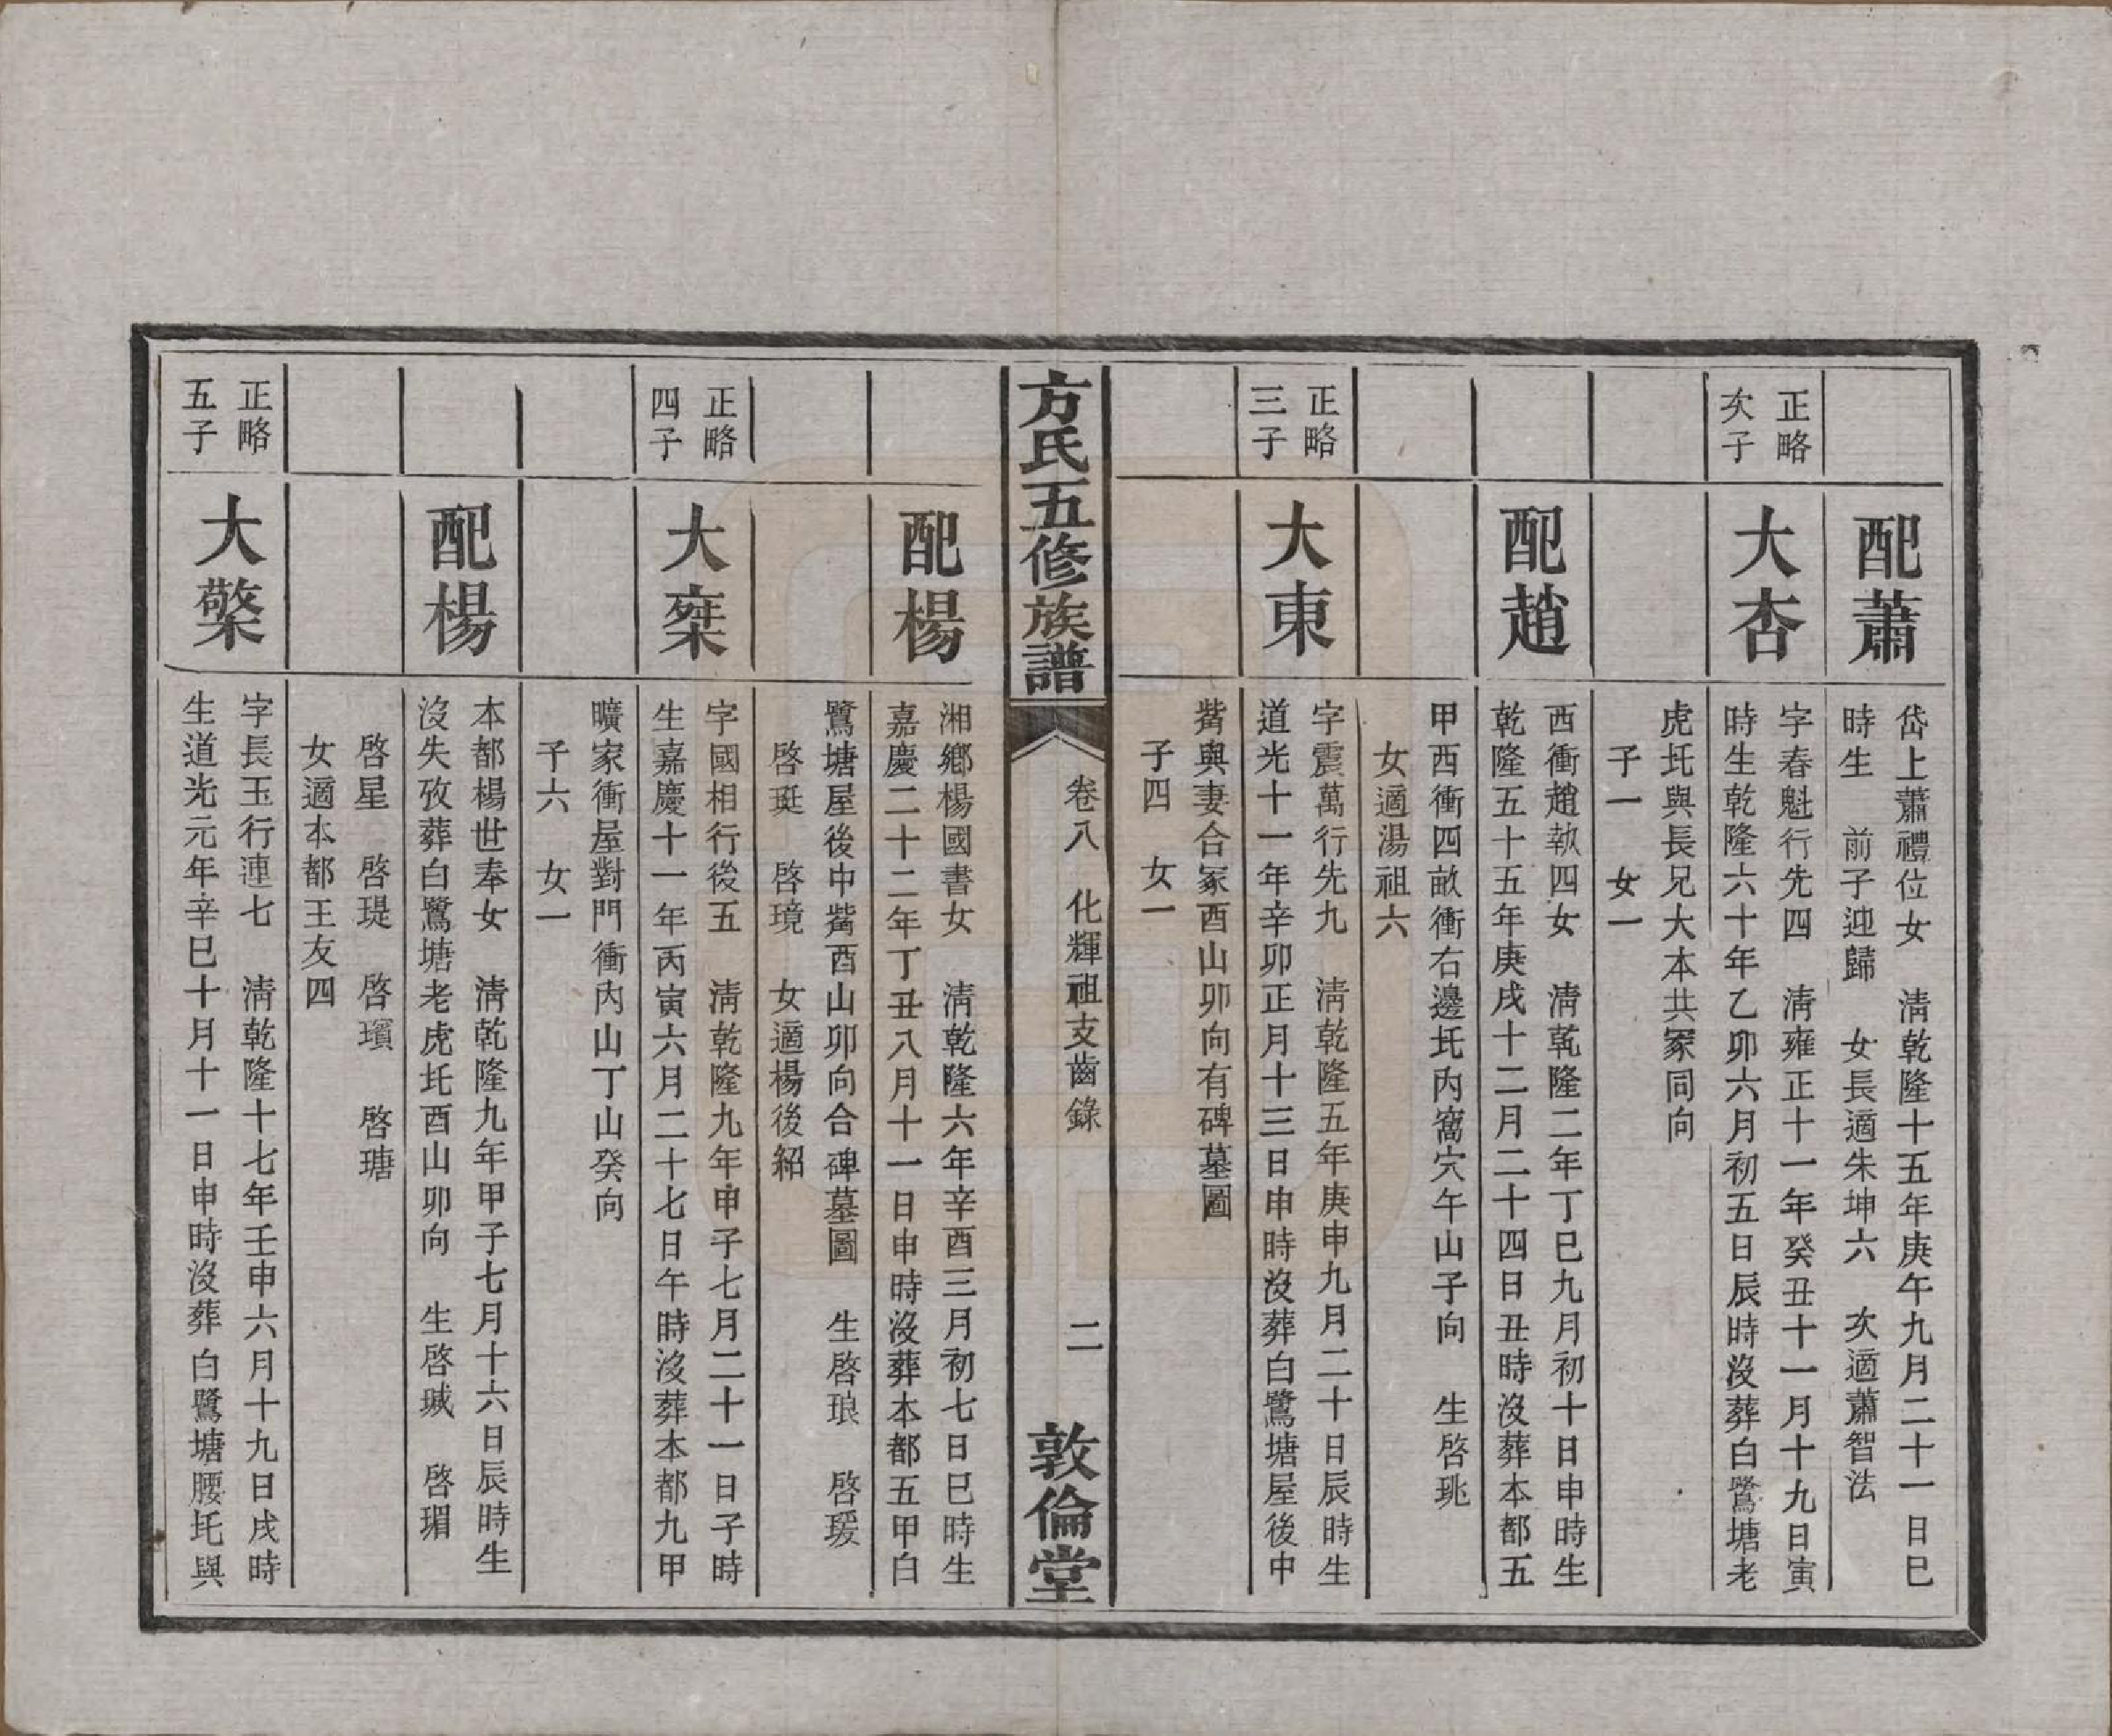 配蕭
岱上蕭禮位女　淸乾隆十五年庚午九月二十一日巳
時生　前子迎歸　女長適朱坤六　次適蕭智法
正略
次子
大杏
字春魁行先四　淸雍正十一年癸丑十一月十九日寅
時生乾隆六十年乙卯六月初五日辰時沒葬白鷺塘老
虎圫與長兄大本共冢同向
子一　女一
配趙
西衝趙執四女　淸乾隆二年丁巳九月初十日申時生
乾隆五十五年庚戌十二月二十四日丑時沒葬本都五
甲西衝四畝衝右邊圫內窩穴午山子向　生啓珧
女適湯祖六
正略
三子
大東
字震萬行先九　淸乾隆五年庚申九月二十日辰時生
道光十一年辛卯正月十三日申時沒葬白鷺塘屋後中
觜與妻合冢酉山卯向有碑墓圖
子四　女一
方氏五修族譜
卷八　化輝祖支齒錄
二
敦倫堂
配楊
湘鄉楊國書女　淸乾隆六年辛酉三月初七日巳時生
嘉慶二十二年丁丑八月十一日申時沒葬本都五甲白
鷺塘屋後中觜酉山卯向合碑墓圖　生啓琅　啓瑗
啓珽　啓璄　女適楊後紹
正略
四子
大椉
字國相行後五　淸乾隆九年甲子七月二十一日子時
生嘉慶十一年丙寅六月二十七日午時沒葬本都九甲
曠家衝屋對門衝內山丁山癸向
子六　女一
配楊
本都楊世奉女　淸乾隆九年甲子七月十六日辰時生
沒失攷葬白鷺塘老虎圫酉山卯向　生啓珹　啓瑂
啓星　啓瑅　啓璌　啓瑭
女適本都王友四
正略
五子
大檠
字長玉行連七　淸乾隆十七年壬申六月十九日戌時
生道光元年辛巳十月十一日申時沒葬白鷺塘腰圫與